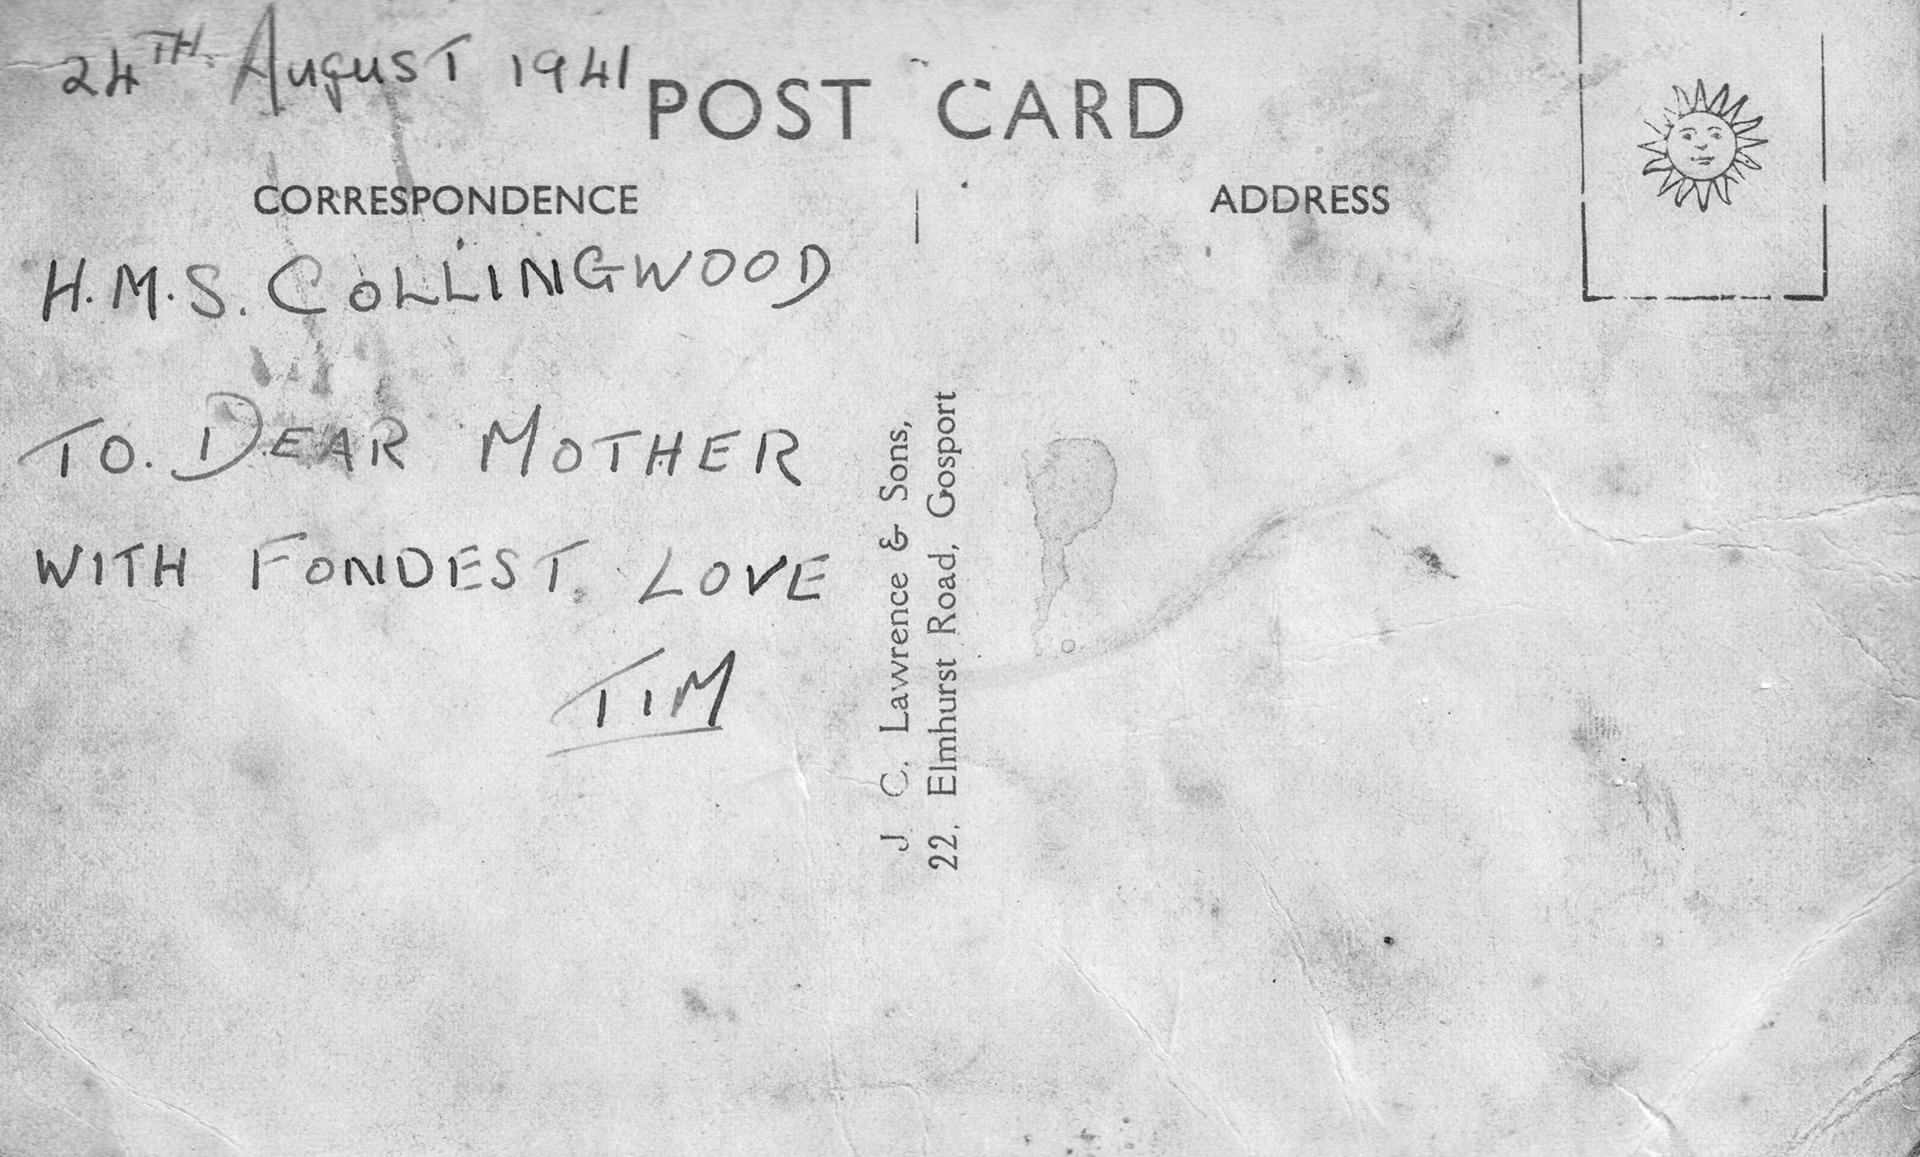 24TH August 1941
POST CARD
CORRESPONDENCE
ADDRESS
H.M.S. COLLINGWOOD
TO. DEAR MOTHER
WITH FONDEST LOVE
TIM
J C. Lawrence & Sons,
22, Elmhurst Road, Gosport